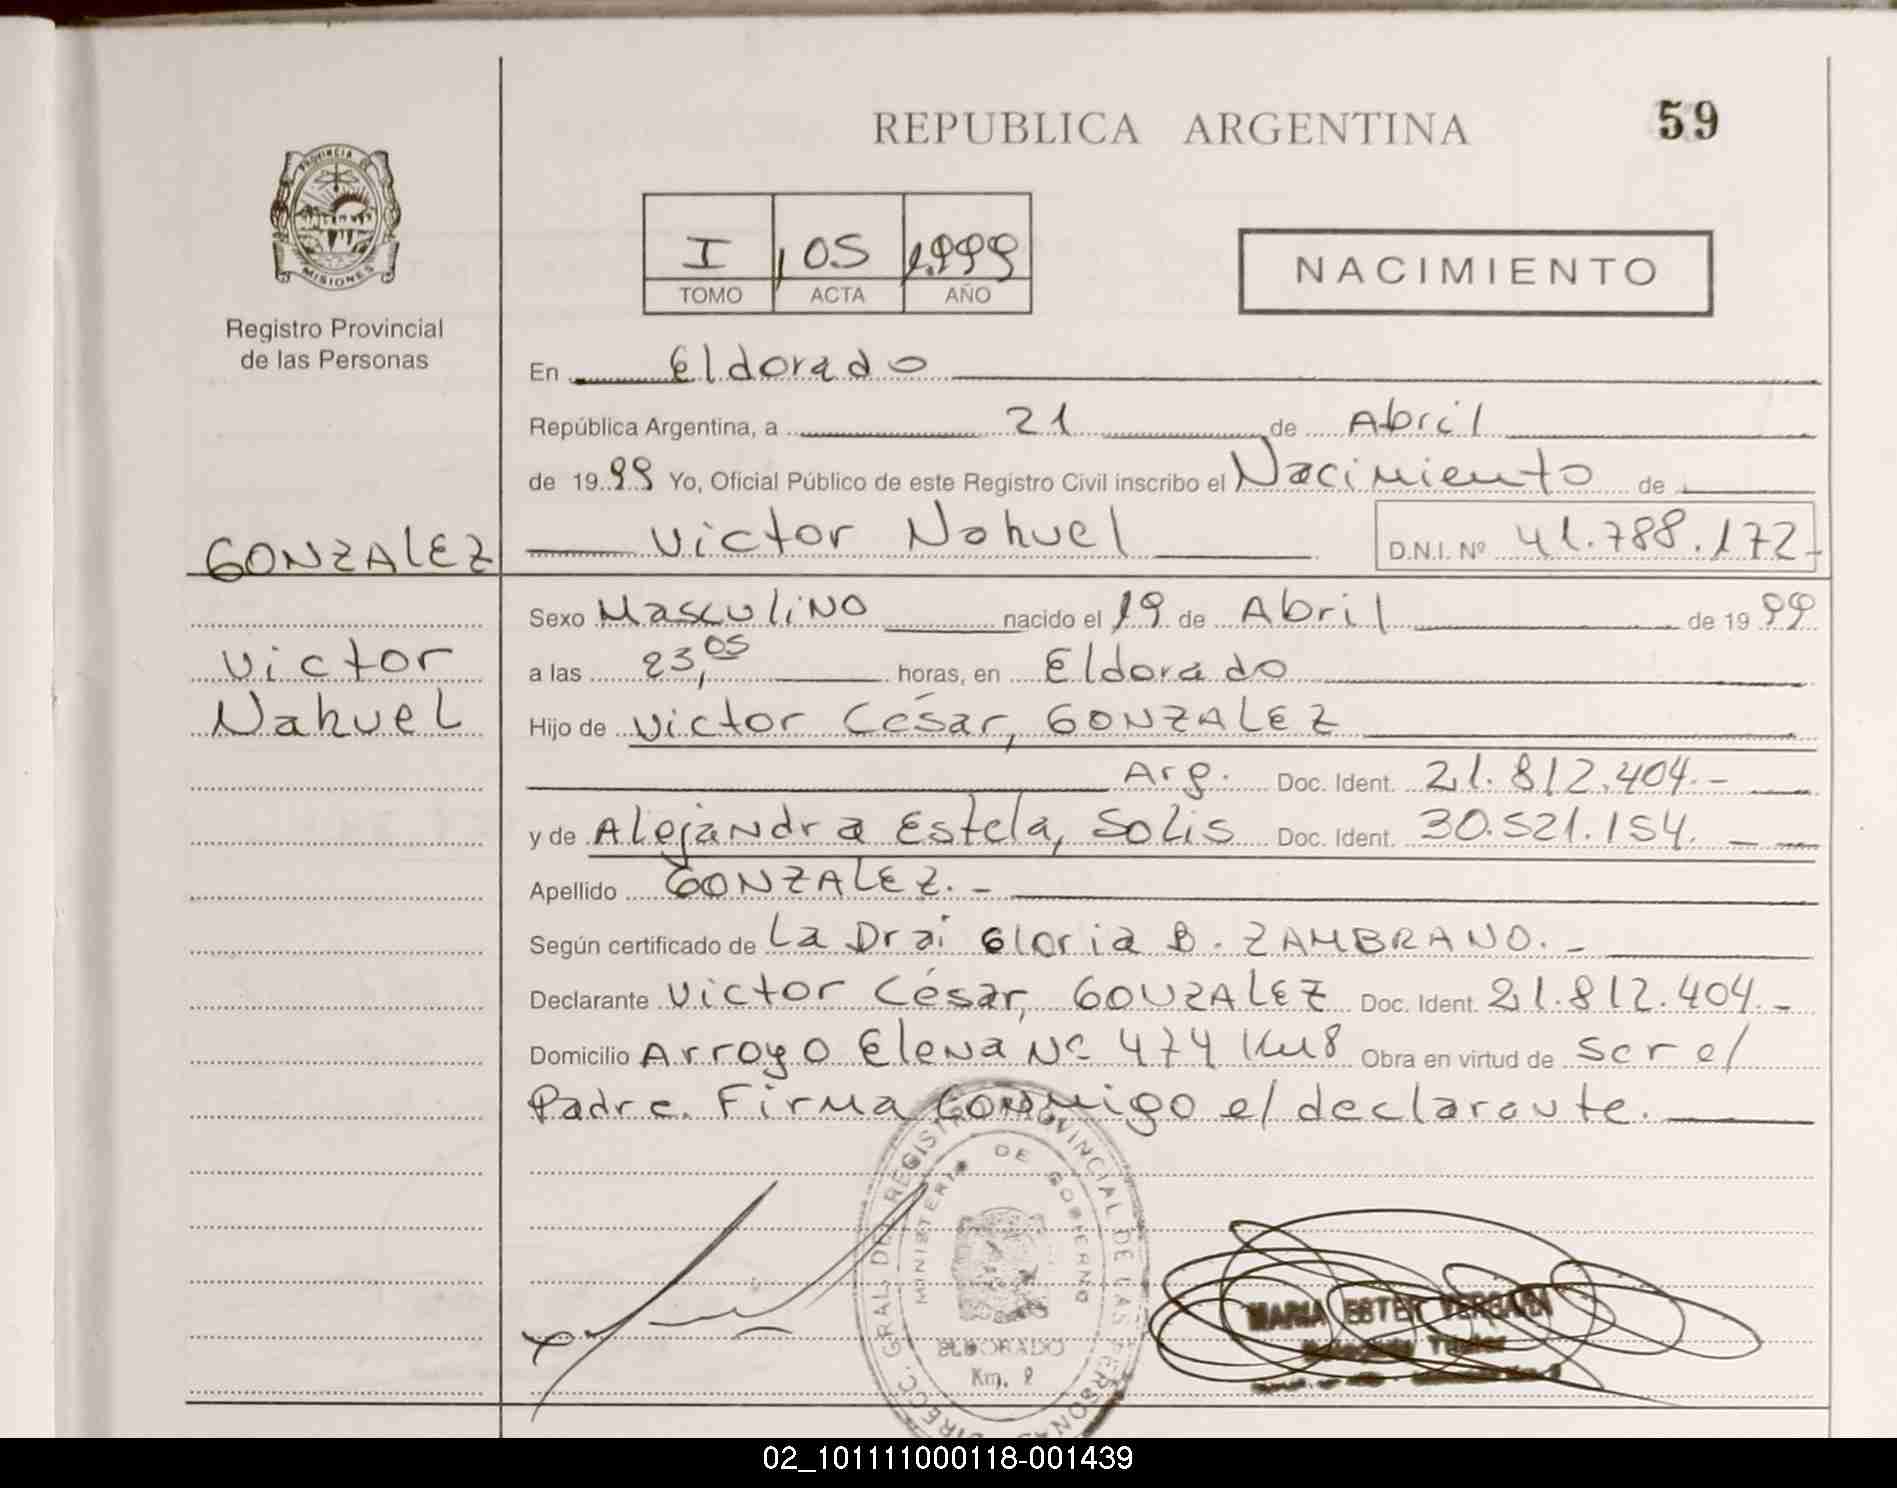 REPUBLICA ARGENTINA
59
PROVINCIA DE
MISIONES
Registro Provincial
de las Personas
I 105 1.999
TOMO ACTA AÑO
NACIMIENTO
En Eldorado
República Argentina, a 21 de Abril
de 1999 Yo, Oficial Público de este Registro Civil inscribo el Nacimiento de
GONZALEZ
Victor Nahuel D.N.I. Nº 41.788.172
Victor
Nahuel
Sexo Masculino nacido el 19 de Abril de 1999
a las 23,05 horas, en Eldorado
Hijo de Victor César, GONZALEZ
Arg. Doc. Ident. 21.812.404.-
y de Alejandra Estela, Solis Doc. Ident. 30.521.154. -
Apellido GONZALEZ.-
Según certificado de La Dra: Gloria B. ZAMBRANO.-
Declarante Victor César, GONZALEZ Doc. Ident. 21.812.404.-
Domicilio Arroyo Elena Nº 474 Km 8 Obra en virtud de ser el
Padre. Firma Conmigo el declarante.
DIRECC. GRAL. DEL REGISTRO PROVINCIAL DE LAS PERSONAS
MINISTERIO DE GOBIERNO
ELDORADO
Km.
MARIA ESTER VERGARA
Delegada Titular
02_101111000118-001439